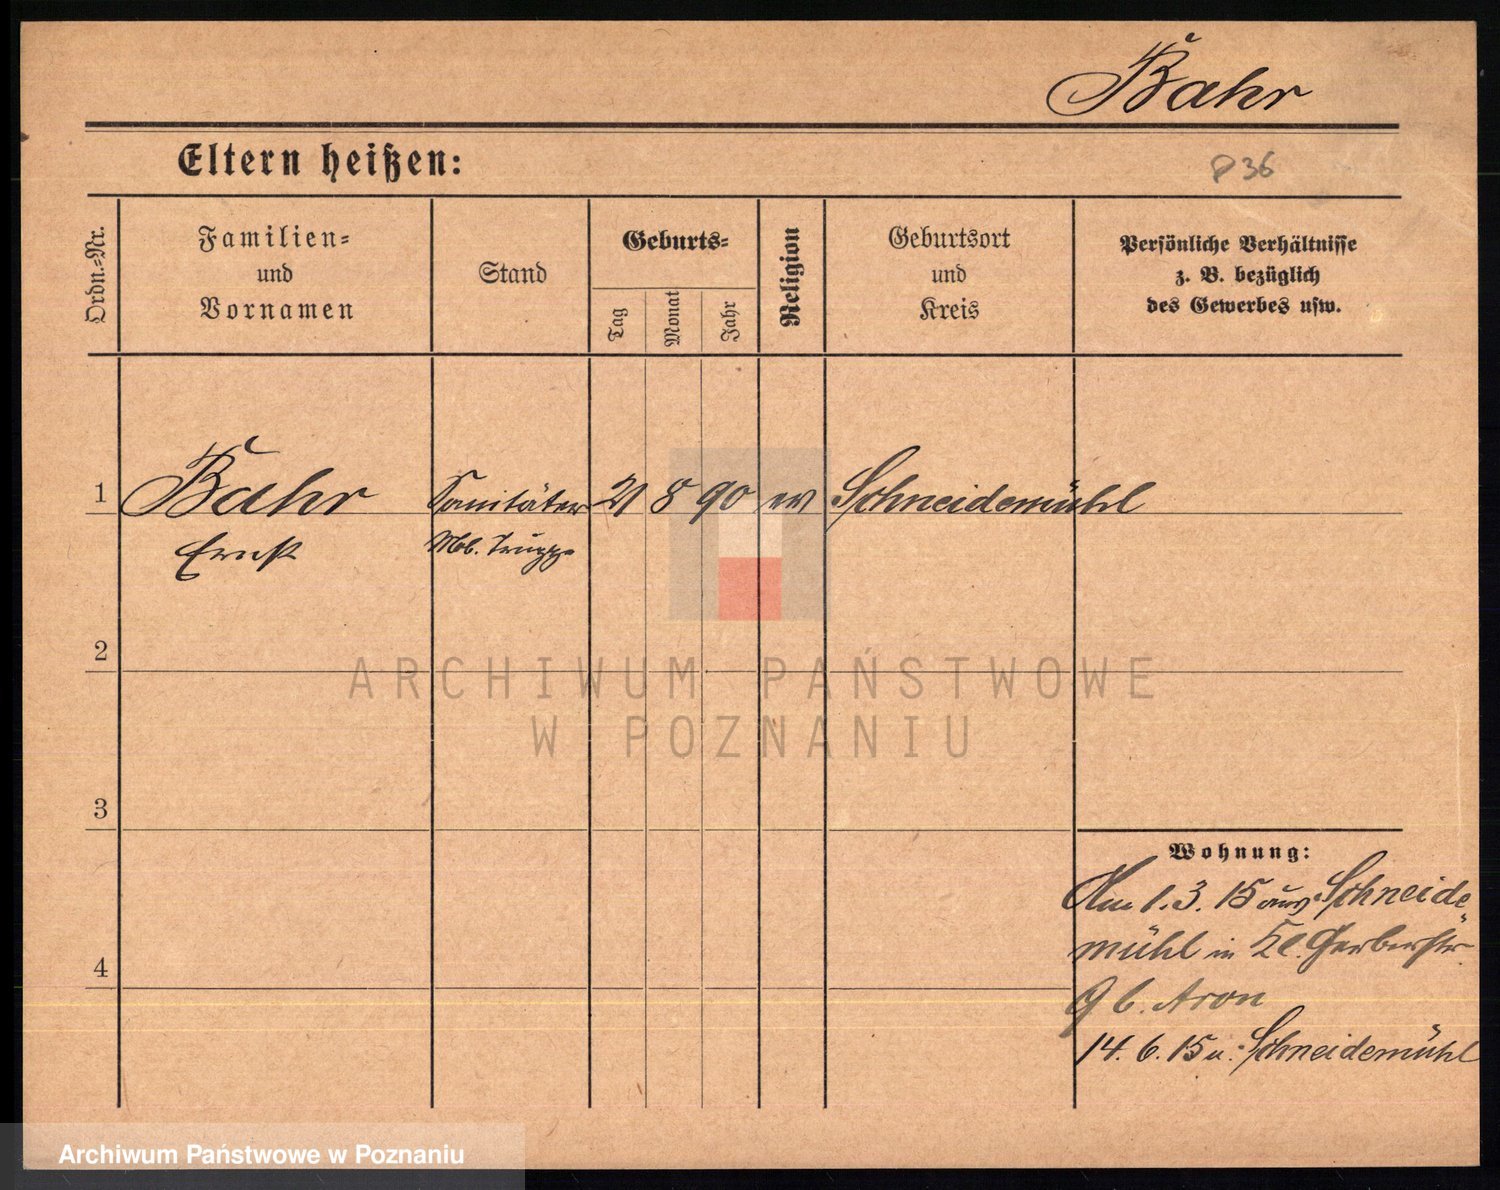 Bahr
Eltern heißen:
P 36
Ordn.-Nr.
Familien-
und
Vornamen
Stand
Geburts-
Tag
Monat
Jahr
Religion
Geburtsort
und
Kreis
Persönliche Verhältnisse
z. B. bezüglich
des Gewerbes usw.
1 Bahr Sanitäter 21 8 90 ev Schneidemühl
Ernst Mob. Truppe
2
ARCHIWUM PAŃSTWOWE
W POZNANIU
3
Wohnung:
Am 1.3.15 aus Schneide
mühl in Kl. Gerberstr
4
9 b. Aron
14.6.15 n. Schneidemühl
Archiwum Państwowe w Poznaniu